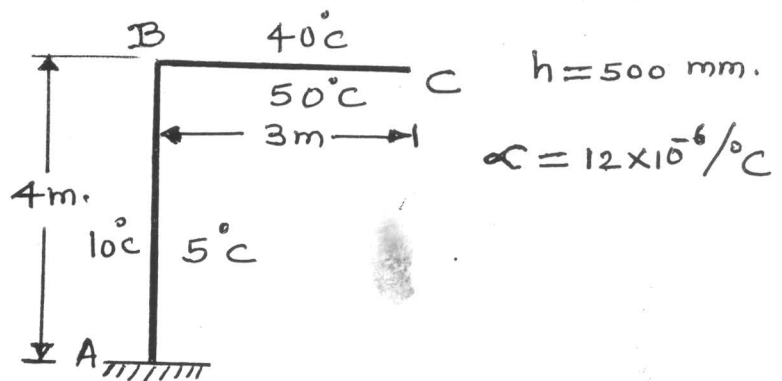 B 40°C
50°C C h = 500 mm.
3m
α = 12×10⁻⁶/°C
4m.
10°C 5°C
A